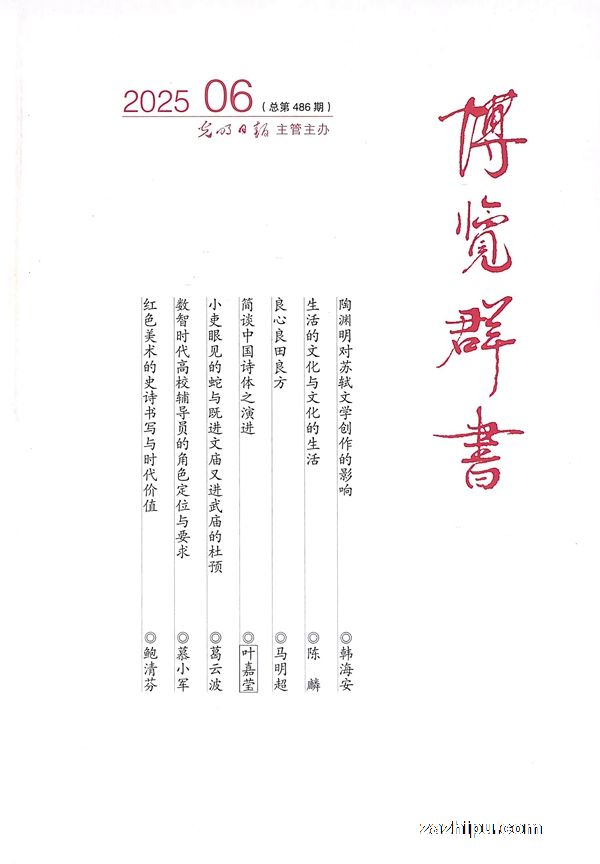 2025 06 (总第486期)
光明日报 主管主办
博览群書
陶渊明对苏轼文学创作的影响 ◎ 韩海安
生活的文化与文化的生活 ◎ 陈 麟
良心良田良方 ◎ 马明超
简谈中国诗体之演进 ◎ 叶嘉莹
小吏眼见的蛇与既进文庙又进武庙的杜预 ◎ 葛云波
数智时代高校辅导员的角色定位与要求 ◎ 慕小军
红色美术的史诗书写与时代价值 ◎ 鲍清芬
zazhipu.com